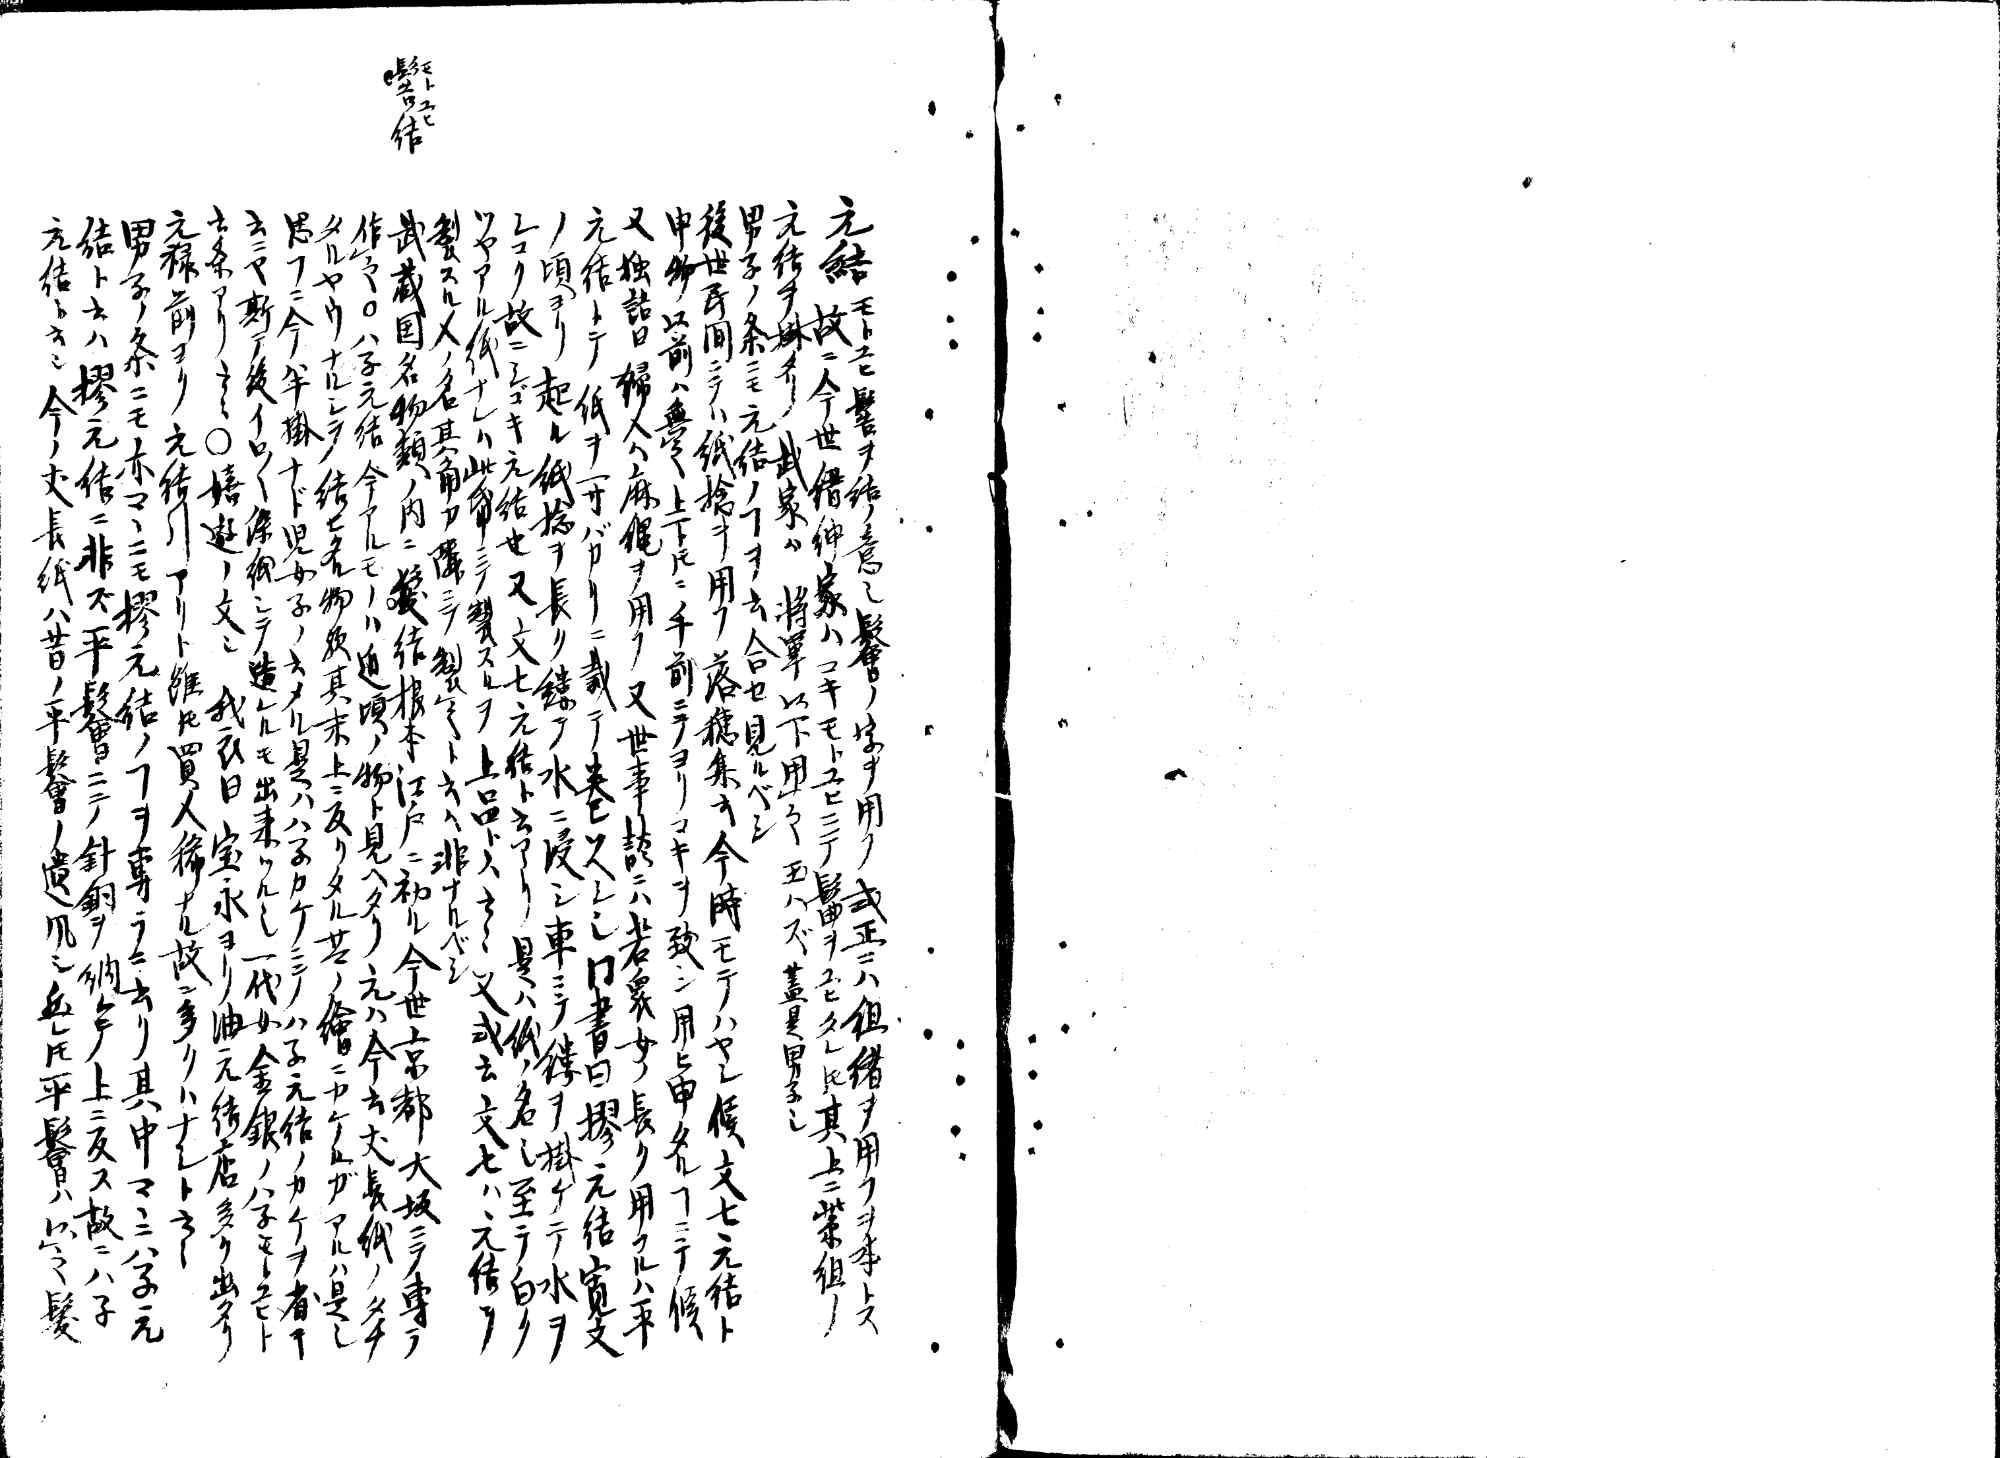 元結 モトユヒ髻ヲ結ノ意也鬠ノ字ヲ用フ式正ニハ組緒ヲ用フヲ本トス
故ニ今世縉紳家ハコキモトユヒニテ髷ヲユヒタレ𪜈其上ニ紫組ノ
元結ヲ掛タリ武家ハ将軍以下用之玉ハズ蓋是男子也
男子ノ条ニモ元結ノヿヲ云合セ見ルベシ
後世民間ニテハ紙捻ヲ用フ落穂集云今時モテハヤシ候文七元結ト
申物以前ハ無之上下𪜈ニ手前ニテヨリコキヲ致シ用ヒ申タルヿニテ候
又独語曰婦人ハ麻縄ヲ用フ又世事談ニハ若衆女ノ長ク用フルハ平
元結トテ紙ヲ一寸バカリニ裁テ巻ヒツヘシ也同書曰摎元結寛文
ノ頃ヨリ起ル紙捻ヲ長ク縷テ水ニ浸シ車ニテ縷ヲ掛ケテ水ヲ
シコク故ニシゴキ元結也又文七元結ト云アリ是ハ紙ノ名也至テ白ク
ツヤアル紙ナレハ此紙ニテ製スルヲ上品トス云々又或云文七ハ元結ヲ
製スル人ノ名其角カ隣ニテ製之ト云ハ非ナルベシ
髻結 モトユヒ
武蔵国名物類ノ内ニ髪結根本江戸ニ初ル今世京都大坂ニテ専ラ
作之〇ハ子元結今アルモノハ近頃ノ物ト見ヘタリ元ハ今云丈長紙ノタチ
タルヤウナルシテ結ヒ名物類其末上ニ反リタル昔ノ繪ニカケルガアルハ是也
思フニ今半掛ナド児女子ノ云メル是ハハ子カケニテハ子元結ノカケヲ省キ
云ニヤ斯テ後イロ〱條細ニテ造レルモ出来ツルシ一代女金銀ノハ子モトユヒト
云条アリ云々〇嬉遊ノ文也我衣曰宝永ヨリ油元結店多ク出タリ
元禄前ヨリ元結引アリト雖𪜈買人稀ナル故ニ多クハナシト云々
男子ノ条ニモ亦マヽニモ摎元結ノヿヲ専ラニ云リ其中マヽニハ子元
結ト云ハ摎元結ニ非ズ平鬠ニテ針銅ヲ納レテ上ニ反ス故ニハ子
元結ト云也今ノ丈長紙ハ昔ノ平鬠ノ遺風也然𪜈平鬠ハ以之髪